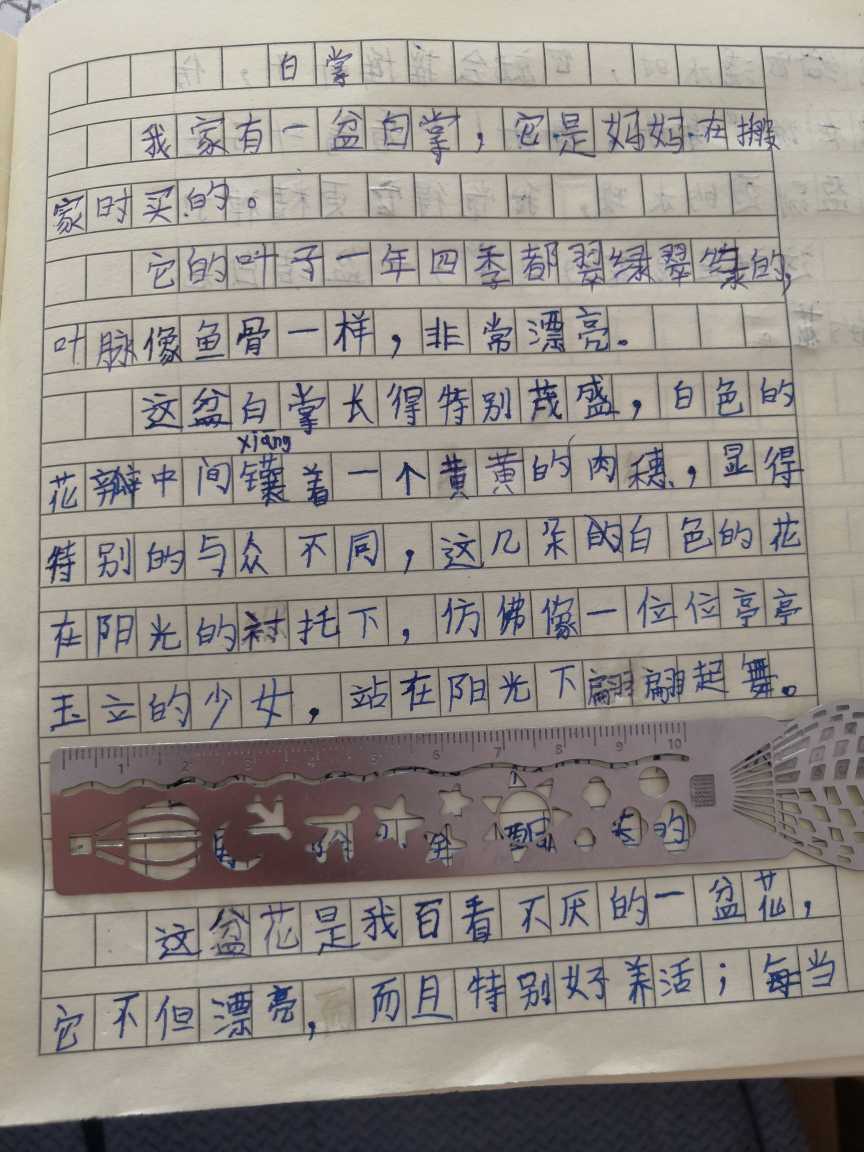 白掌
我家有一盆白掌，它是妈妈在搬
家时买的。
它的叶子一年四季都翠绿翠绿的，
叶脉像鱼骨一样，非常漂亮。
这盆白掌长得特别茂盛，白色的
xiāng
花瓣中间镶着一个黄黄的肉穗，显得
特别的与众不同，这几朵的白色的花
在阳光的衬托下，仿佛像一位位亭亭
玉立的少女，站在阳光下翩翩起舞。
1 2 3 4 5 6 7 8 9 10
的
这盆花是我百看不厌的一盆花，
它不但漂亮，而且特别好养活；每当